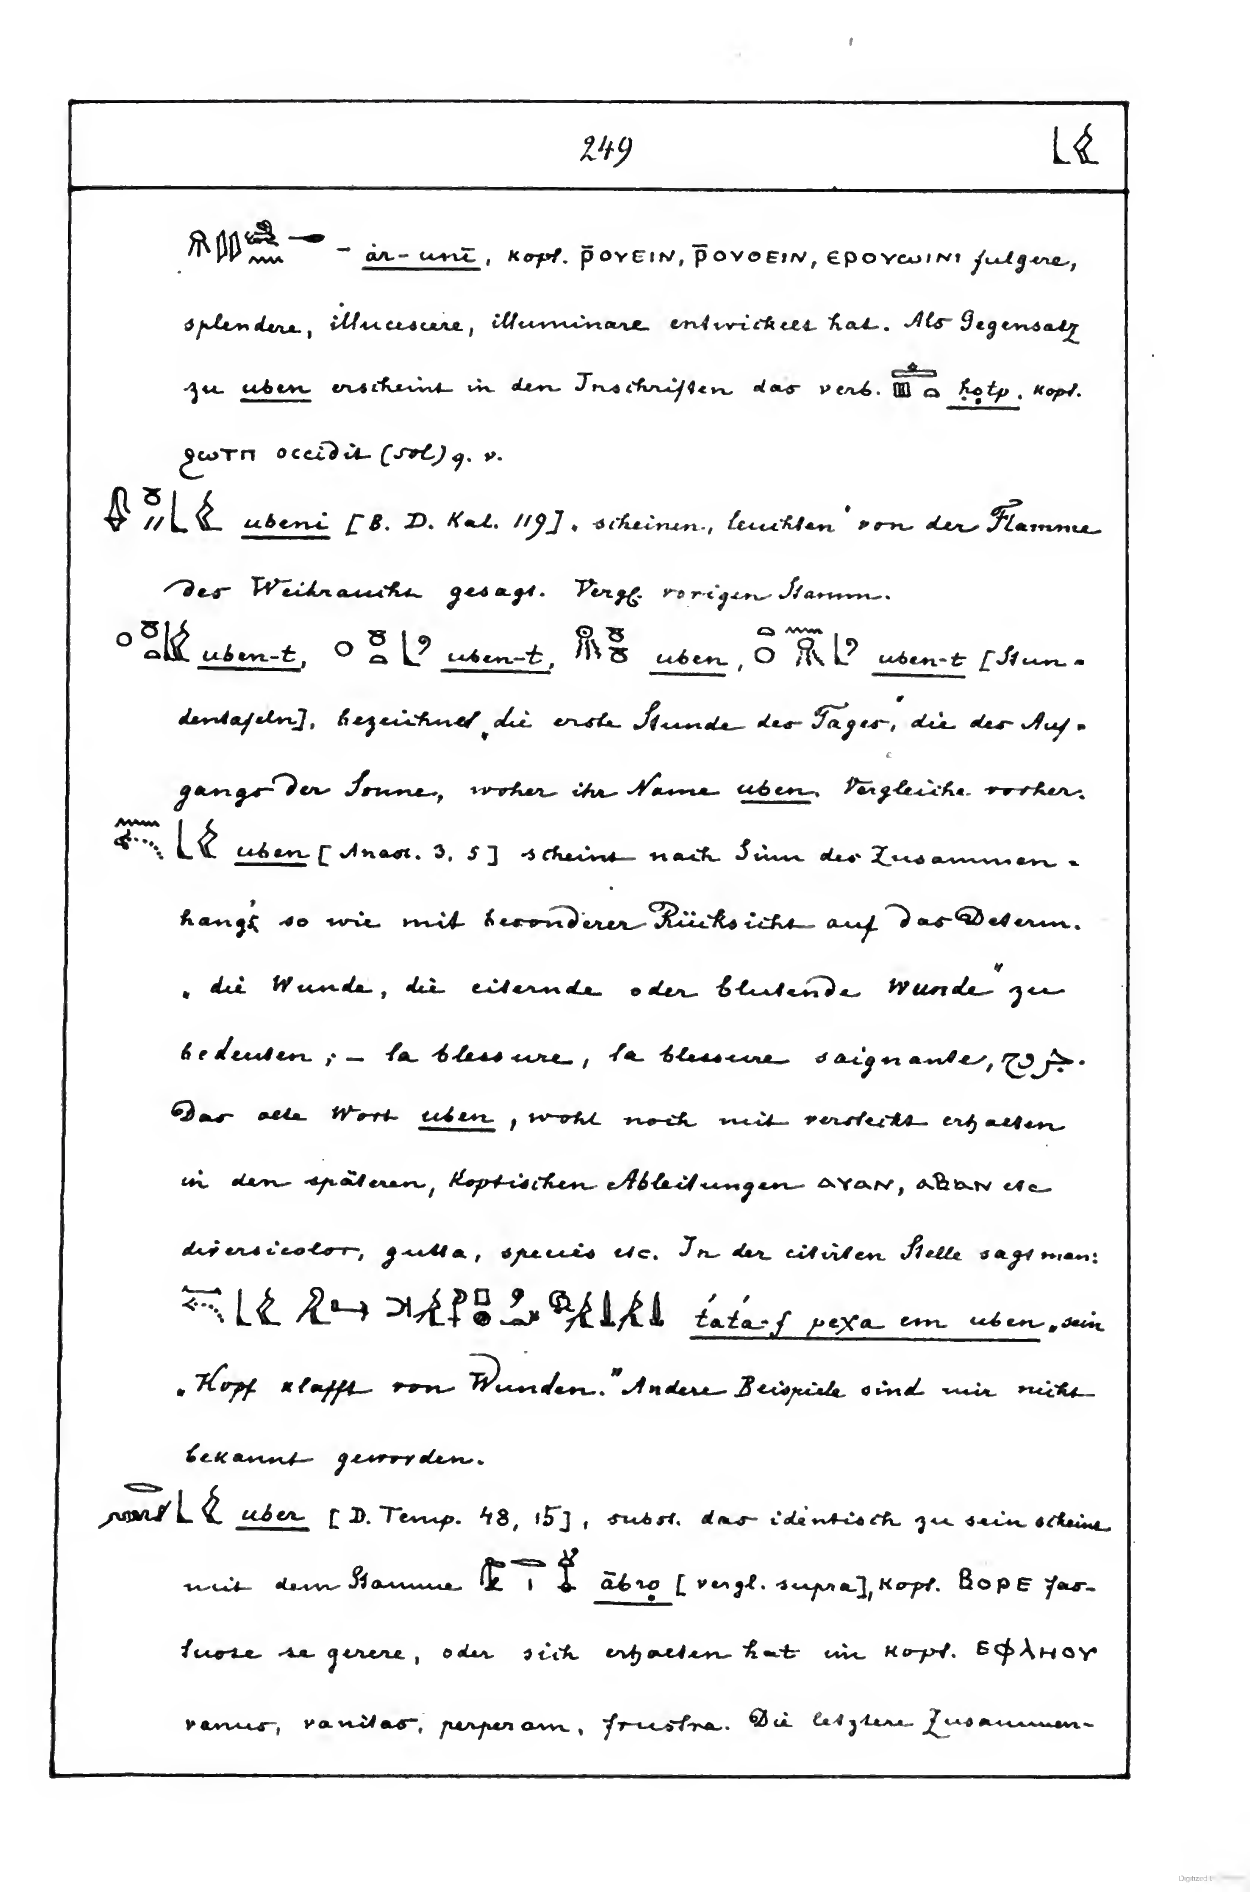 249
– ȧr-unī, kopt. ⲣ̄ⲟⲩⲉⲓⲛ, ⲣ̄ⲟⲩⲟⲉⲓⲛ, ⲉⲣⲟⲩⲱⲓⲛⲓ fulgere,
splendere, illucescere, illuminare entwickelt hat. Als Gegensatz
zu uben erscheint in den Inschriften das verb. ḥotp, kopt.
ϩⲱⲧⲡ occidit (sol) q. v.
ubeni [B. D. Kal. 119], „scheinen, leuchten“ von der Flamme
des Weihrauchs gesagt. Vergl. vorigen Stamm.
uben-t, uben-t, uben, uben-t [Stun-
dentafeln], bezeichnet „die erste Stunde des Tages“, die des Auf-
gangs der Sonne, woher ihr Name uben. Vergleiche vorher.
uben [Anast. 3, 5] scheint nach Sinn des Zusammen-
hang's so wie mit besonderer Rücksicht auf das Determ.
„die Wunde, die eiternde oder blutende Wunde“ zu
bedeuten; – la blessure, la blessure saignante,
Das alte Wort uben, wohl noch mit versteckt erhalten
in den späteren, Koptischen Ableitungen ⲁⲩⲁⲛ, ⲁⲃⲁⲛ etc
diversicolor, gutta, species etc. In der citirten Stelle sagt man:
t́at́a-f peχa em uben „sein
„Kopf klafft von Wunden.“ Andere Beispiele sind mir nicht
bekannt geworden.
uber [D. Temp. 48, 15], subst. das identisch zu sein scheint
mit dem Stamme ābro [vergl. supra], kopt. ⲃⲟⲣⲉ fas-
tuose se gerere, oder sich erhalten hat im kopt. ⲉⲫⲗⲏⲟⲩ
vanus, vanitas, perperam, frustra. Die letztere Zusammen-